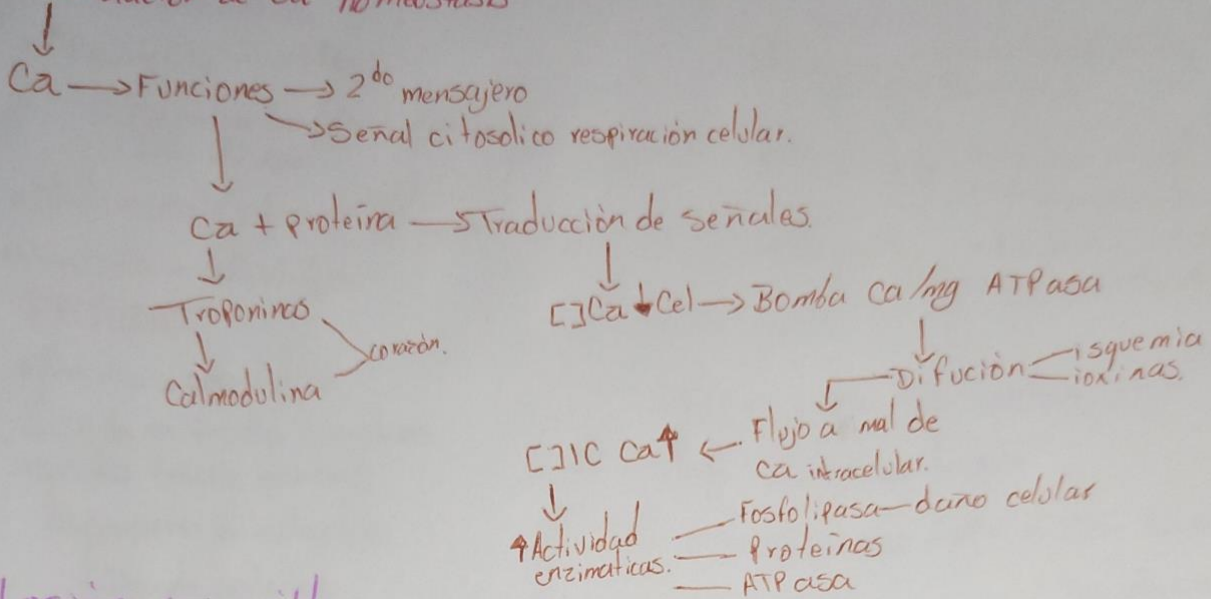 de homeostasis
Ca → Funciones → 2do mensajero
→ Señal citosolico respiración celular.
Ca + proteína → Traducción de señales.
Troponinas
corazón.
Calmodulina
[]Ca↓Cel → Bomba Ca/mg ATPasa
Difución
isquemia
ioxinas.
Flujo a mal de
Ca intracelular.
[]IC Ca↑
↑Actividad
enzimaticas.
Fosfolipasa—daño celular
Proteínas
ATPasa